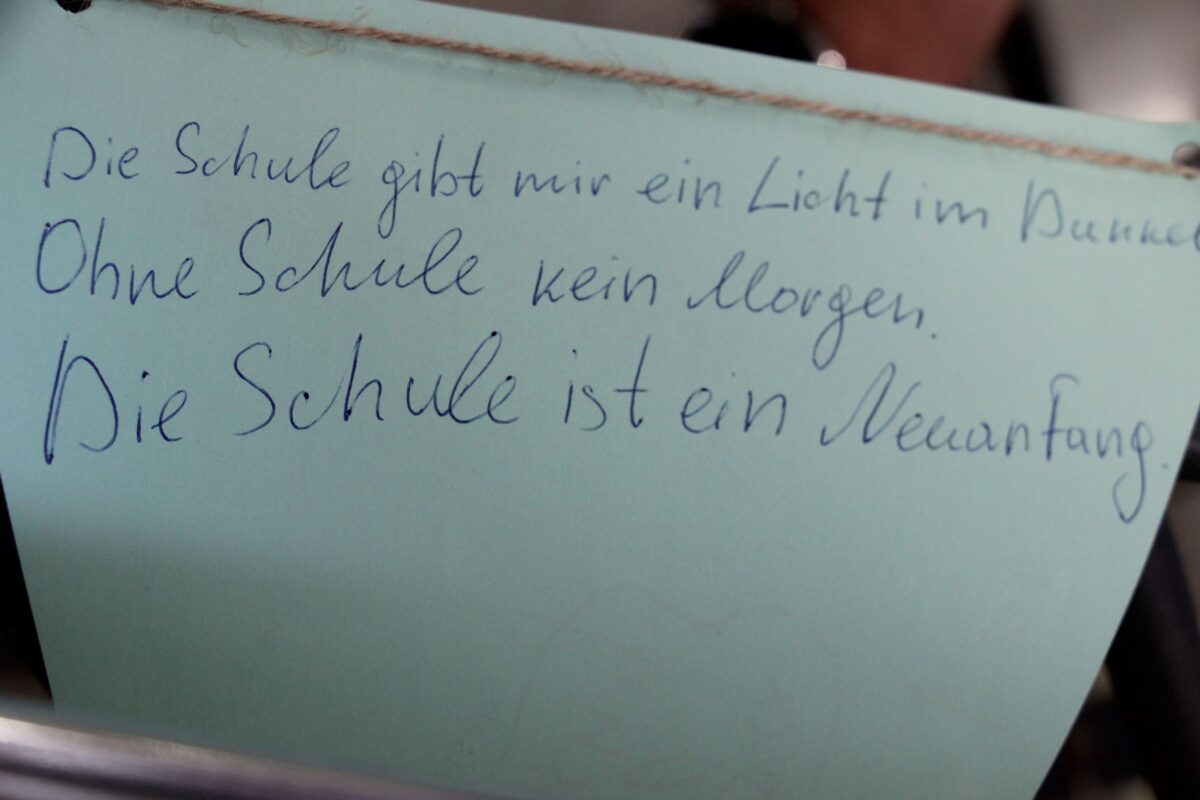 Die Schule gibt mir ein Licht im Dunkel
Ohne Schule kein Morgen.
Die Schule ist ein Neuanfang.